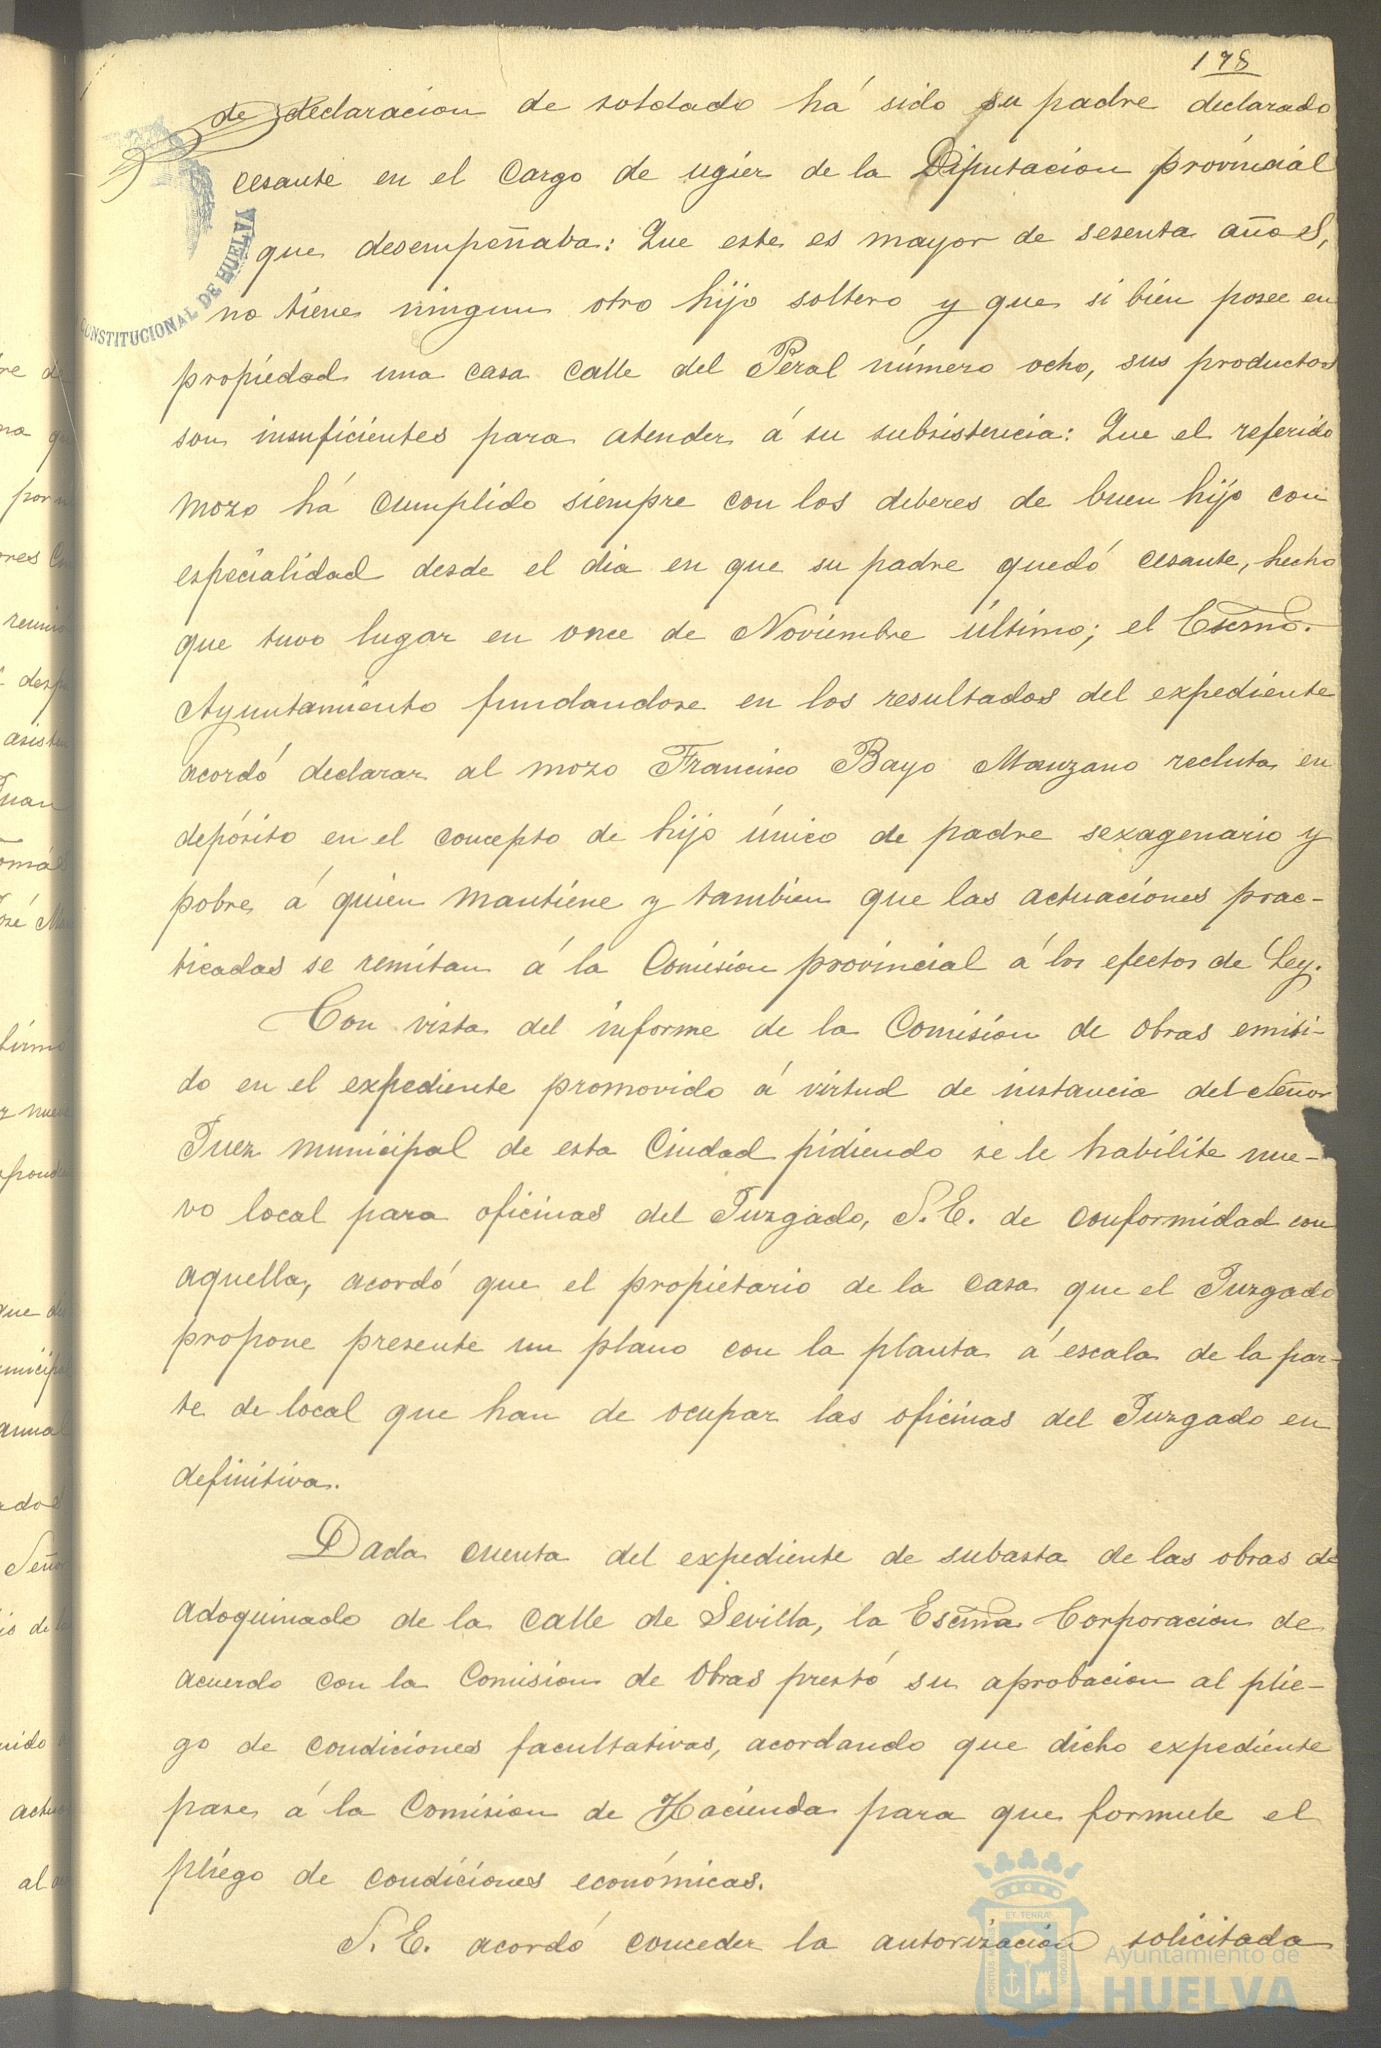 178
de declaracion de soldado há sido su padre declarado
cesante en el cargo de ugier de la Diputacion provincial
que desempeñaba: Que este es mayor de sesenta años,
no tiene ningun otro hijo soltero y que si bien posee en
propiedad una casa calle del Peral número ocho, sus productos
son insuficientes para atender á su subsistencia: Que el referido
mozo há cumplido siempre con los deberes de buen hijo con
especialidad desde el dia en que su padre quedó cesante, hecho
que tuvo lugar en once de Noviembre último; el Escmo.
Ayuntamiento fundandose en los resultados del expediente
acordó declarar al mozo Francisco Bayo Manzano recluta en
depósito en el concepto de hijo único de padre sexagenario y
pobre á quien mantiene y tambien que las actuaciones prac-
ticadas se remitan á la Comision provincial á los efectos de Ley.
Con vista del informe de la Comision de obras emiti-
do en el expediente promovido á virtud de instancia del Señor
Juez municipal de esta Ciudad pidiendo se le habilite nue-
vo local para oficinas del Juzgado, S. E. de conformidad con
aquella, acordó que el propietario de la casa que el Juzgado
propone presente un plano con la planta á escala de la par-
te de local que han de ocupar las oficinas del Juzgado en
definitiva.
Dada cuenta del expediente de subasta de las obras de
adoquinado de la calle de Sevilla, la Escma Corporacion de
acuerdo con la Comision de Obras prestó su aprobacion al plie-
go de condiciones facultativas, acordando que dicho expediente
pase á la Comision de Hacienda para que formule el
pliego de condiciones económicas.
S. E. acordó conceder la autorización solicitada
CONSTITUCIONAL DE HUELVA
Ayuntamiento de
HUELVA